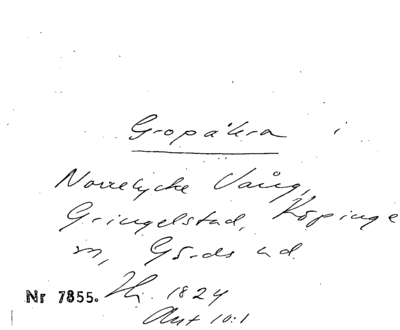 Gropåkra i
Norrelycke Vång,
Gringelstad, Köpinge
sn, Gärds hd.
Nr 7855. Hj. 1824
Akt 10:1